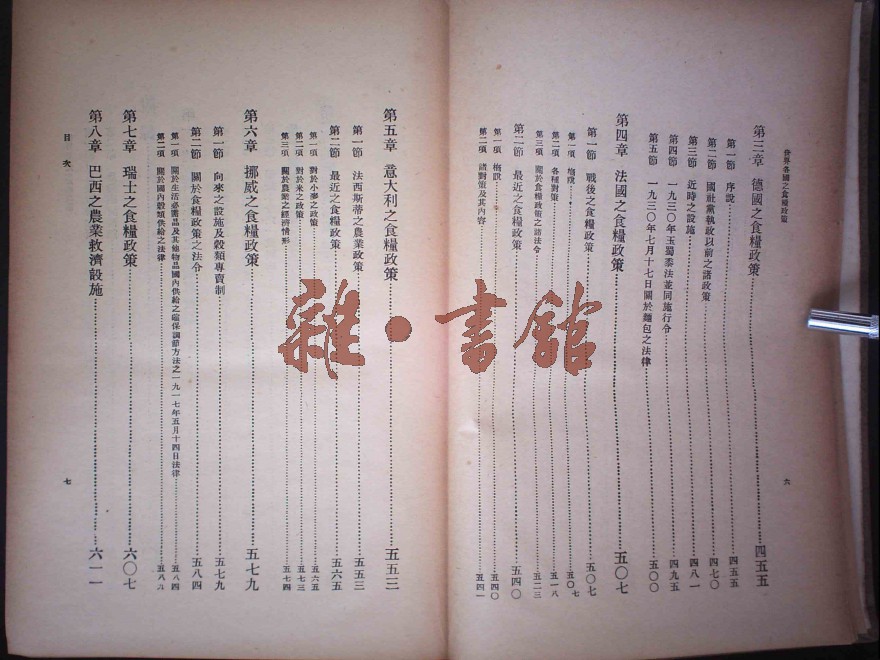 世界各國之食糧政策
第三章 德國之食糧政策 四五五
第一節 序說 四五五
第二節 國社黨執政以前之諸政策 四七〇
第三節 近時之設施 四八一
第四節 一九三〇年玉蜀黍法並同施行令 四九五
第五節 一九三〇年七月十七日關於麵包之法律 五〇〇
第四章 法國之食糧政策 五〇七
第一節 戰後之食糧政策 五〇七
第一項 槪說 五〇七
第二項 各種對策 五一八
第三項 關於食糧政策之諸法令 五二三
第二節 最近之食糧政策 五四〇
第一項 槪說 五四〇
第二項 諸對策及其內容 五四一
六
第五章 意大利之食糧政策 五五三
第一節 法西斯蒂之農業政策 五五三
第二節 最近之食糧政策 五六五
第一項 對於小麥之政策 五六五
第二項 對於米之政策 五七三
第三項 關於農業之經濟情形 五七四
第六章 挪威之食糧政策 五七九
第一節 向來之設施及穀類專賣制 五七九
第二節 關於食糧政策之法令 五八四
第一項 關於生活必需品及其他物品國內供給之確保調節方法之一九一七年五月十四日法律 五八四
第二項 關於國內穀類供給之法律 五八
第七章 瑞士之食糧政策 六〇七
第八章 巴西之農業救濟設施 六一一
目次
七
雜·書館